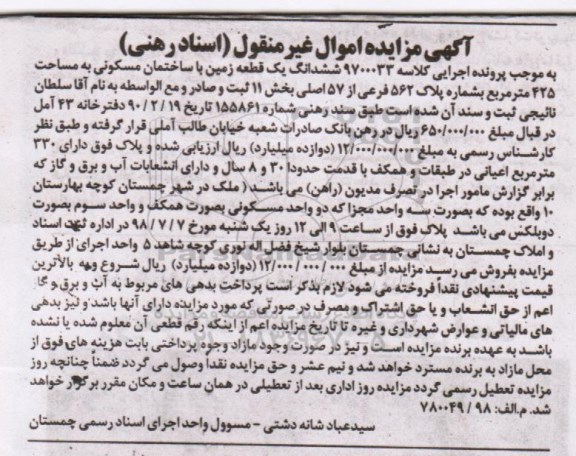 آگهی مزایده اموال غیر منقول (اسناد رهنی)
به موجب پرونده اجرایی کلاسه ۹۷۰۰۰۳۳ ششدانگ یک قطعه زمین با ساختمان مسکونی به مساحت
۴۲۵ مترمربع بشماره پلاک ۵۶۲ فرعی از ۵۷ اصلی بخش ۱۱ ثبت و صادر و مع الواسطه به نام آقا سلطان
نائیجی ثبت و سند آن شده است طبق سند رهنی شماره ۱۵۵۸۶۱ تاریخ ۹۰/۲/۱۹ دفترخانه ۴۳ آمل
در قبال مبلغ ۶۵۰/۰۰۰/۰۰۰ ریال در رهن بانک صادرات شعبه خیابان طالب آملی قرار گرفته و طبق نظر
کارشناس رسمی به مبلغ ۱۲/۰۰۰/۰۰۰/۰۰۰ (دوازده میلیارد) ریال ارزیابی شده و پلاک فوق دارای ۳۳۰
مترمربع اعیانی در طبقات و همکف با قدمت حدودا ۳۰ و ۸ سال و دارای انشعابات آب و برق و گاز که
برابر گزارش مامور اجرا در تصرف مدیون (راهن) می باشد ( ملک در شهر چمستان کوچه بهارستان
۱۰ واقع بوده که بصورت سه واحد مجزا که دو واحد مسکونی بصورت همکف و واحد سوم بصورت
دوبلکس می باشد پلاک فوق از ساعت ۹ الی ۱۲ روز یک شنبه مورخ ۹۸/۷/۷ در اداره ثبت اسناد
و املاک چمستان به نشانی چمستان بلوار شیخ فضل اله نوری کوچه شاهد ۵ واحد اجرای از طریق
مزایده بفروش می رسد مزایده از مبلغ ۱۲/۰۰۰/۰۰۰/۰۰۰ (دوازده میلیارد) ریال شروع وبه بالاترین
قیمت پیشنهادی نقدا فروخته می شود لازم بذکر است پرداخت بدهی های مربوط به آب و برق و گاز
اعم از حق انشعاب و یا حق اشتراک و مصرف در صورتی که مورد مزایده دارای آنها باشد و نیز بدهی
های مالیاتی و عوارض شهرداری و غیره تا تاریخ مزایده اعم از اینکه رقم قطعی آن معلوم شده یا نشده
باشد به عهده برنده مزایده است و نیز در صورت وجود مازاد وجوه پرداختی بابت هزینه های فوق از
محل مازاد به برنده مسترد خواهد شد و نیم عشر و حق مزایده نقدا وصول می گردد ضمناً چنانچه روز
مزایده تعطیل رسمی گردد مزایده روز اداری بعد از تعطیلی در همان ساعت و مکان مقرر برگزار خواهد
شد. م.الف: ۹۸/۷۸۰۰۴۹
سیدعباد شانه دشتی - مسوول واحد اجرای اسناد رسمی چمستان